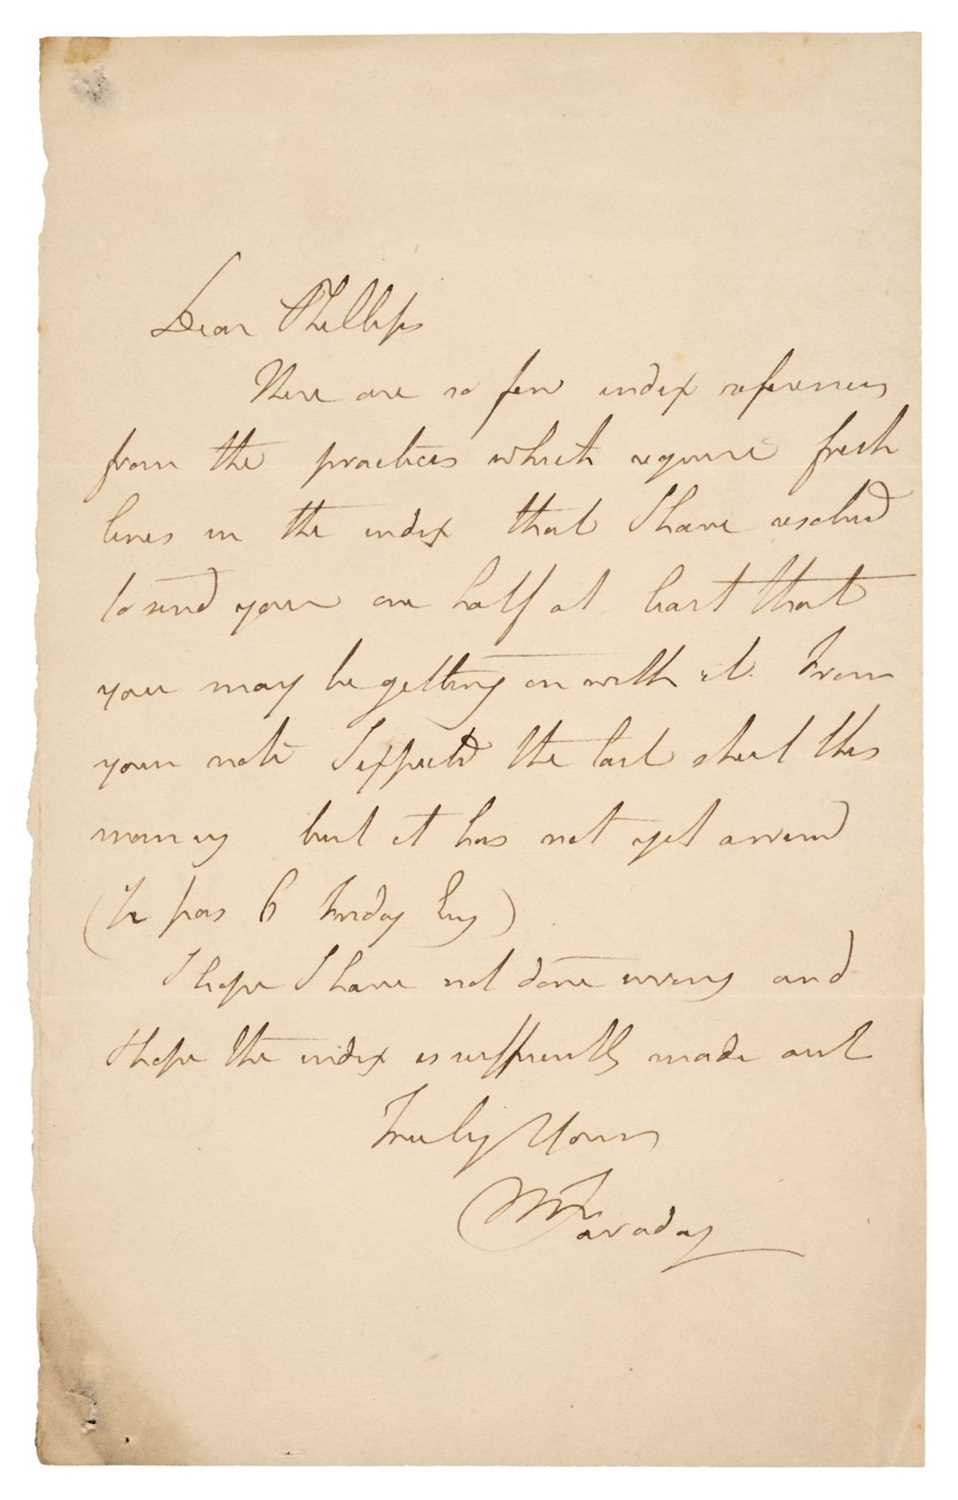 Dear Phillips
There are so few index references
from the practices which require fresh
lines in the index that I have resolved
to send you one half at least that
you may be getting on with it. From
your note I expected the last sheet this
morning but it has not yet arrived
(½ pas 6 Friday Eng)
I hope I have not done wrong and
I hope the index is sufficiently made out
Truly Yours
M Faraday